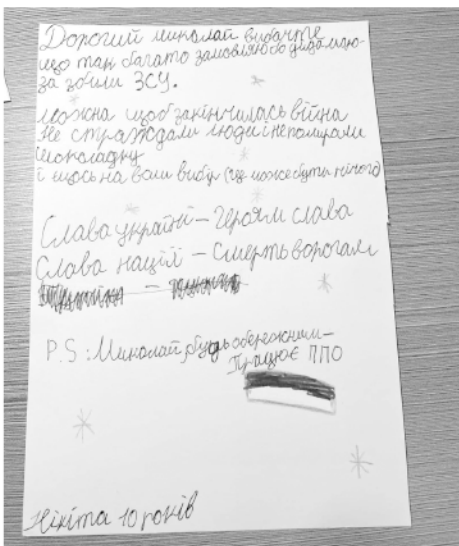 Дорогий миколай вибачте
що так багато замовляю бо
за збили ЗСУ.
можна щоб закінчилась війна
Не страждали люди і не помирали
шоколадку
і щось на ваш вибір (це може бути нічого)
Слава україні – Героям слава
Слава нації – Смерть ворогам
P.S: Миколай будь обережним –
Працює ППО
Нікіта 10 років